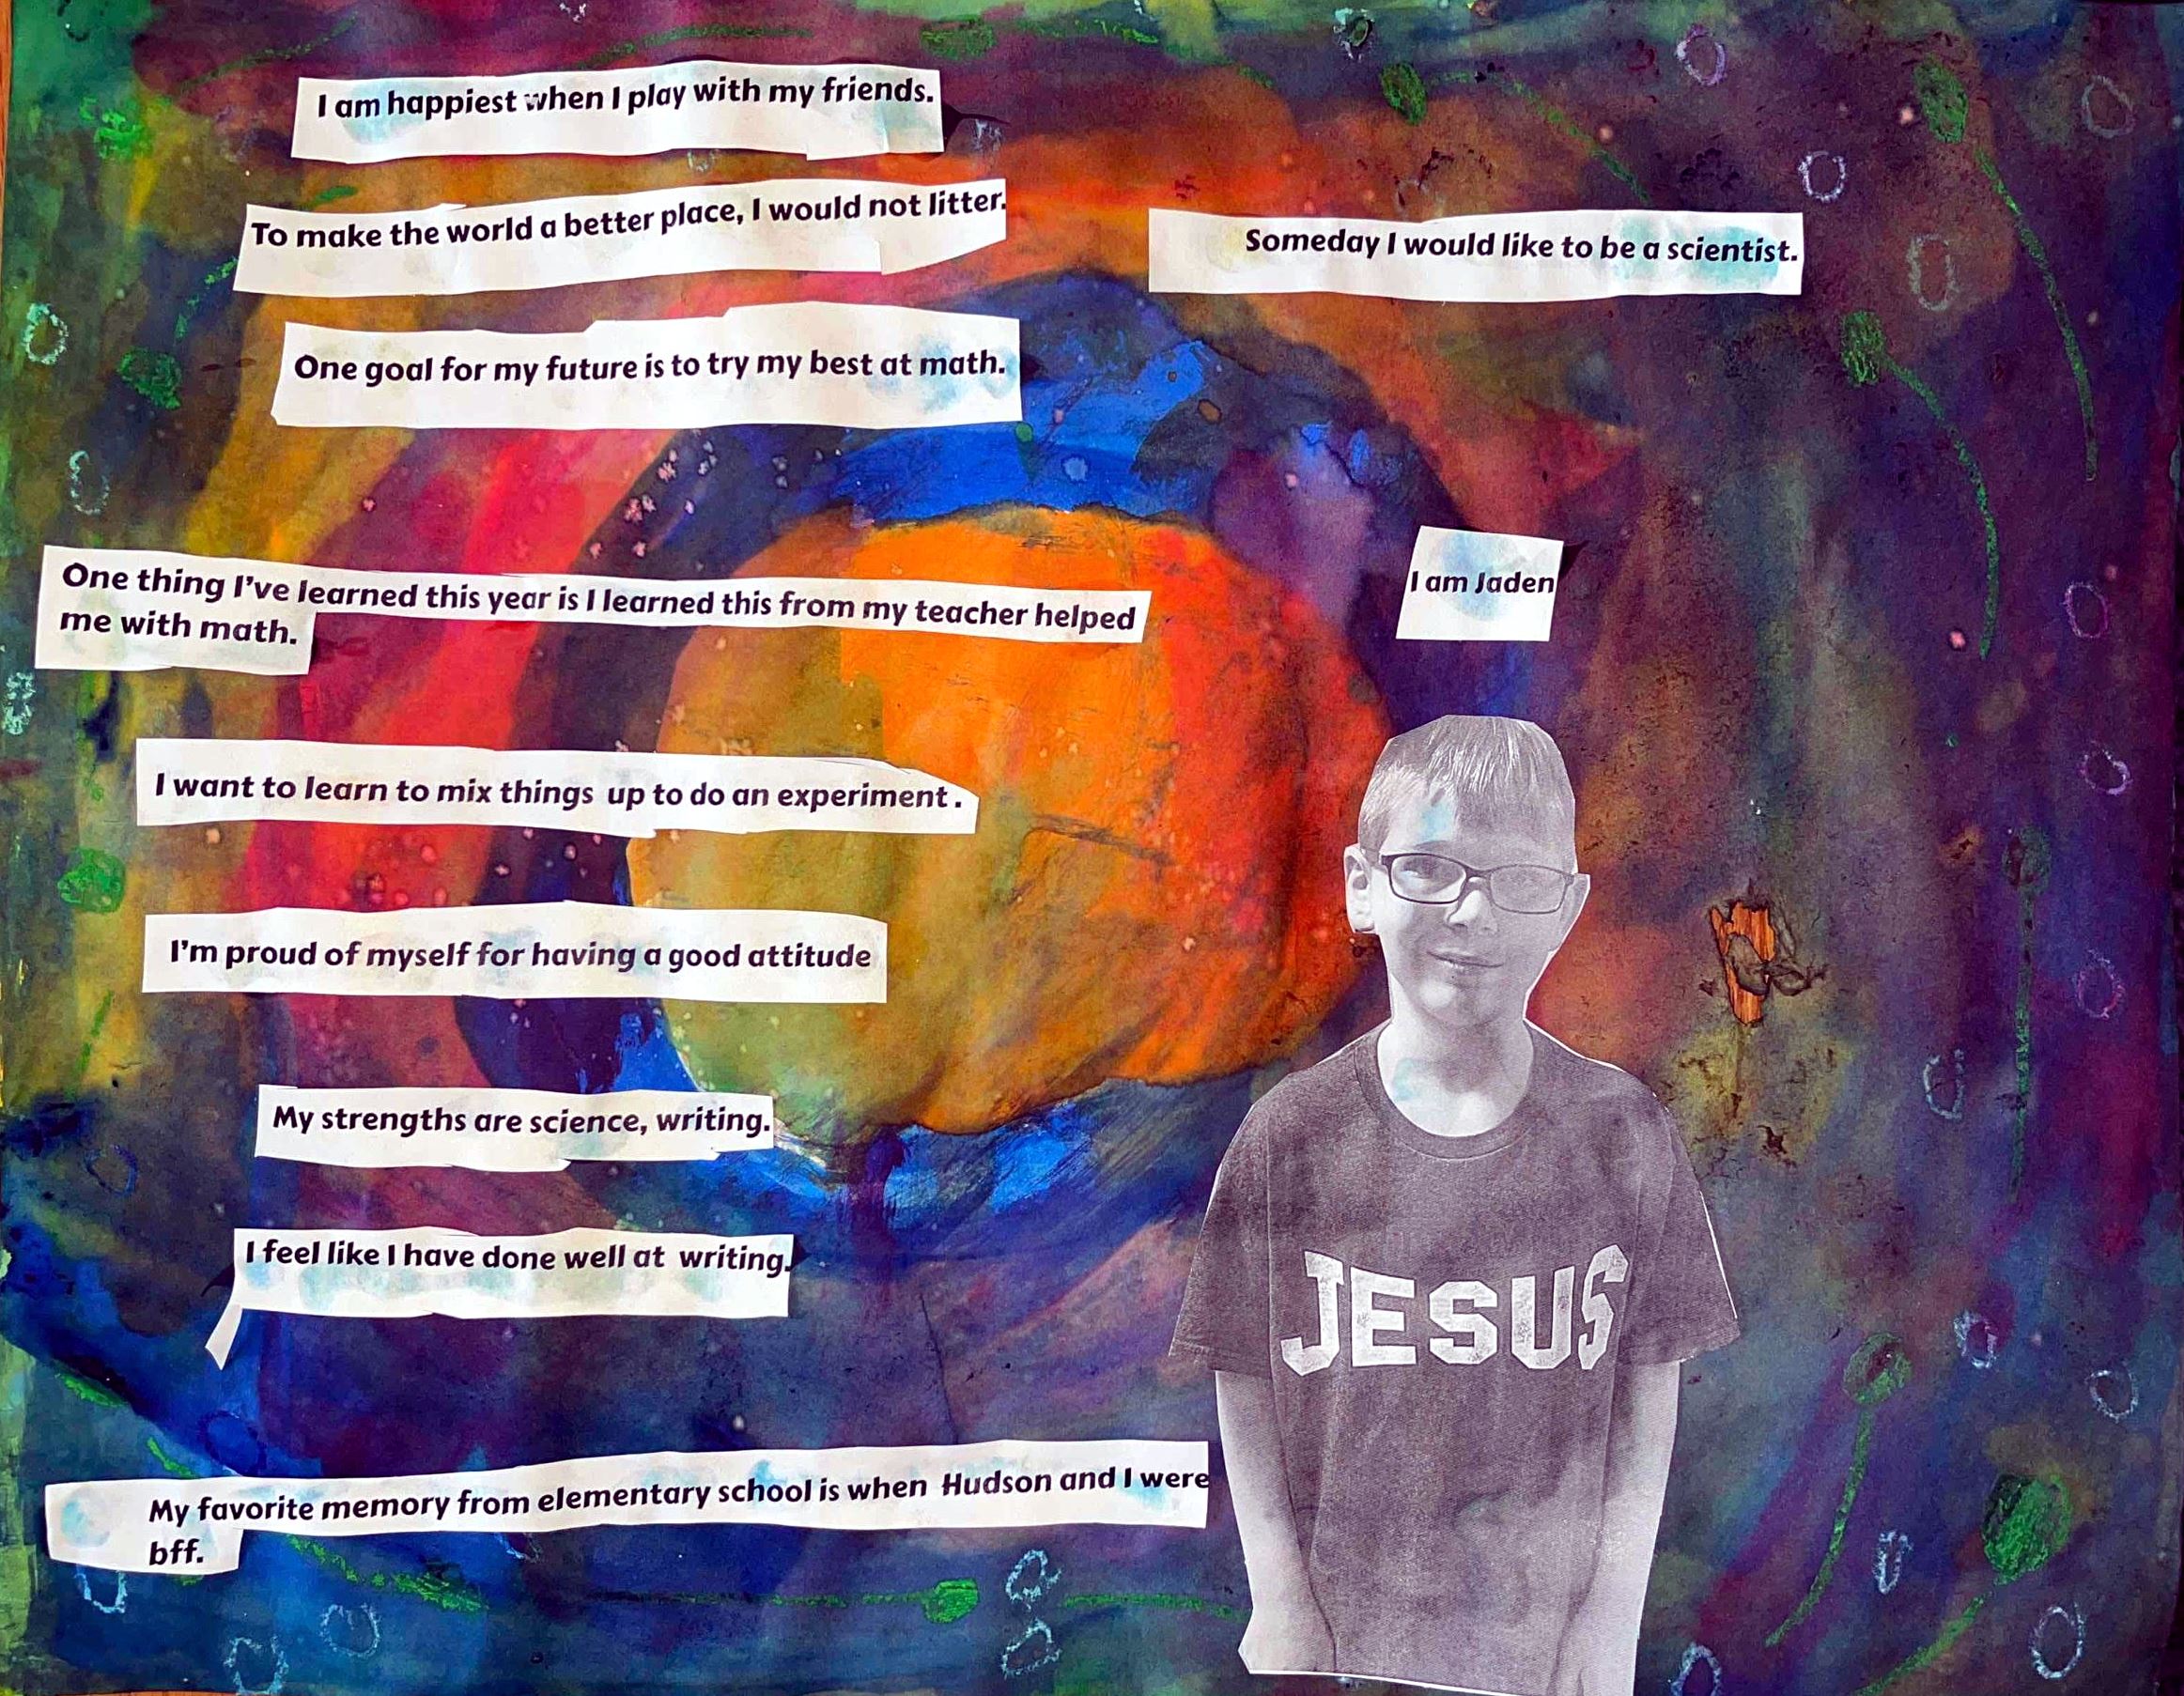 I am happiest when I play with my friends.
To make the world a better place, I would not litter.
Someday I would like to be a scientist.
One goal for my future is to try my best at math.
One thing I've learned this year is I learned this from my teacher helped
me with math.
I am Jaden
I want to learn to mix things up to do an experiment.
I'm proud of myself for having a good attitude
My strengths are science, writing.
I feel like I have done well at writing.
JESUS
My favorite memory from elementary school is when Hudson and I were
bff.